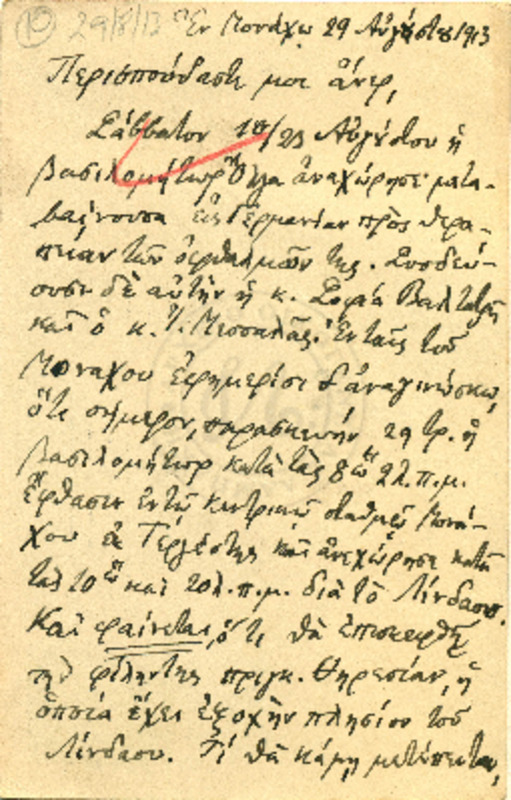 10 29/8/13 Ἐν Μονάχῳ 29 Αὐγούστου 1913
Περισπούδαστέ μοι ἄνερ,
Σάββατον 10/23 Αὐγούστου ἡ
βασιλομήτωρ Ὄλγα ἀνεχώρησε μετα-
βαίνουσα εἰς Γερμανίαν πρὸς θερα-
πείαν τῶν ὀφθαλμῶν της. Συνοδεύ-
ουσι δὲ αὐτὴν ἡ κ. Σοφία Βαλτατζῆ
καὶ ὁ κ. Ἰ. Μεσσαλᾶς. Ἐν ταῖς τοῦ
Μονάχου ἐφημερίσι δ' ἀναγινώσκω,
ὅτι σήμερον, παρασκευήν, 29 τρ. ἡ
βασιλομήτωρ κατὰ τὰς 8 ὥ 2λ. π.μ.
ἔφθασεν ἐν τῷ κεντρικῷ σταθμῷ Μονά-
χου ἐκ Τεργέστης καὶ ἀνεχώρησε κατὰ
τὰς 10 ὥ καὶ 20λ. π.μ. διὰ τὸ Λίνδαου.
Καὶ φαίνεται, ὅτι θὰ ἐπισκεφθῇ
τὴν φίλην της πριγκ. Θηρεσίαν, ἡ
ὁποία ἔχει ἐξοχὴν πλησίον τοῦ
Λίνδαου. Τί θὰ κάμῃ μετέπειτα,